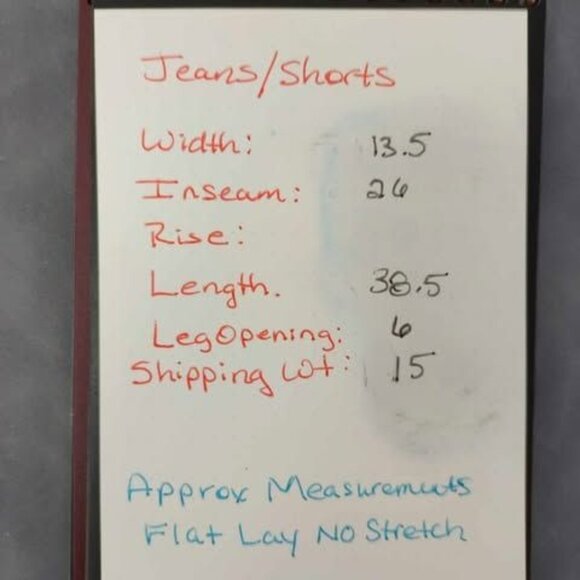 Jeans/Shorts
Width: 13.5
Inseam: 26
Rise:
Length. 38.5
Leg Opening: 6
Shipping Wt: 15
Approx Measurements
Flat Lay No Stretch